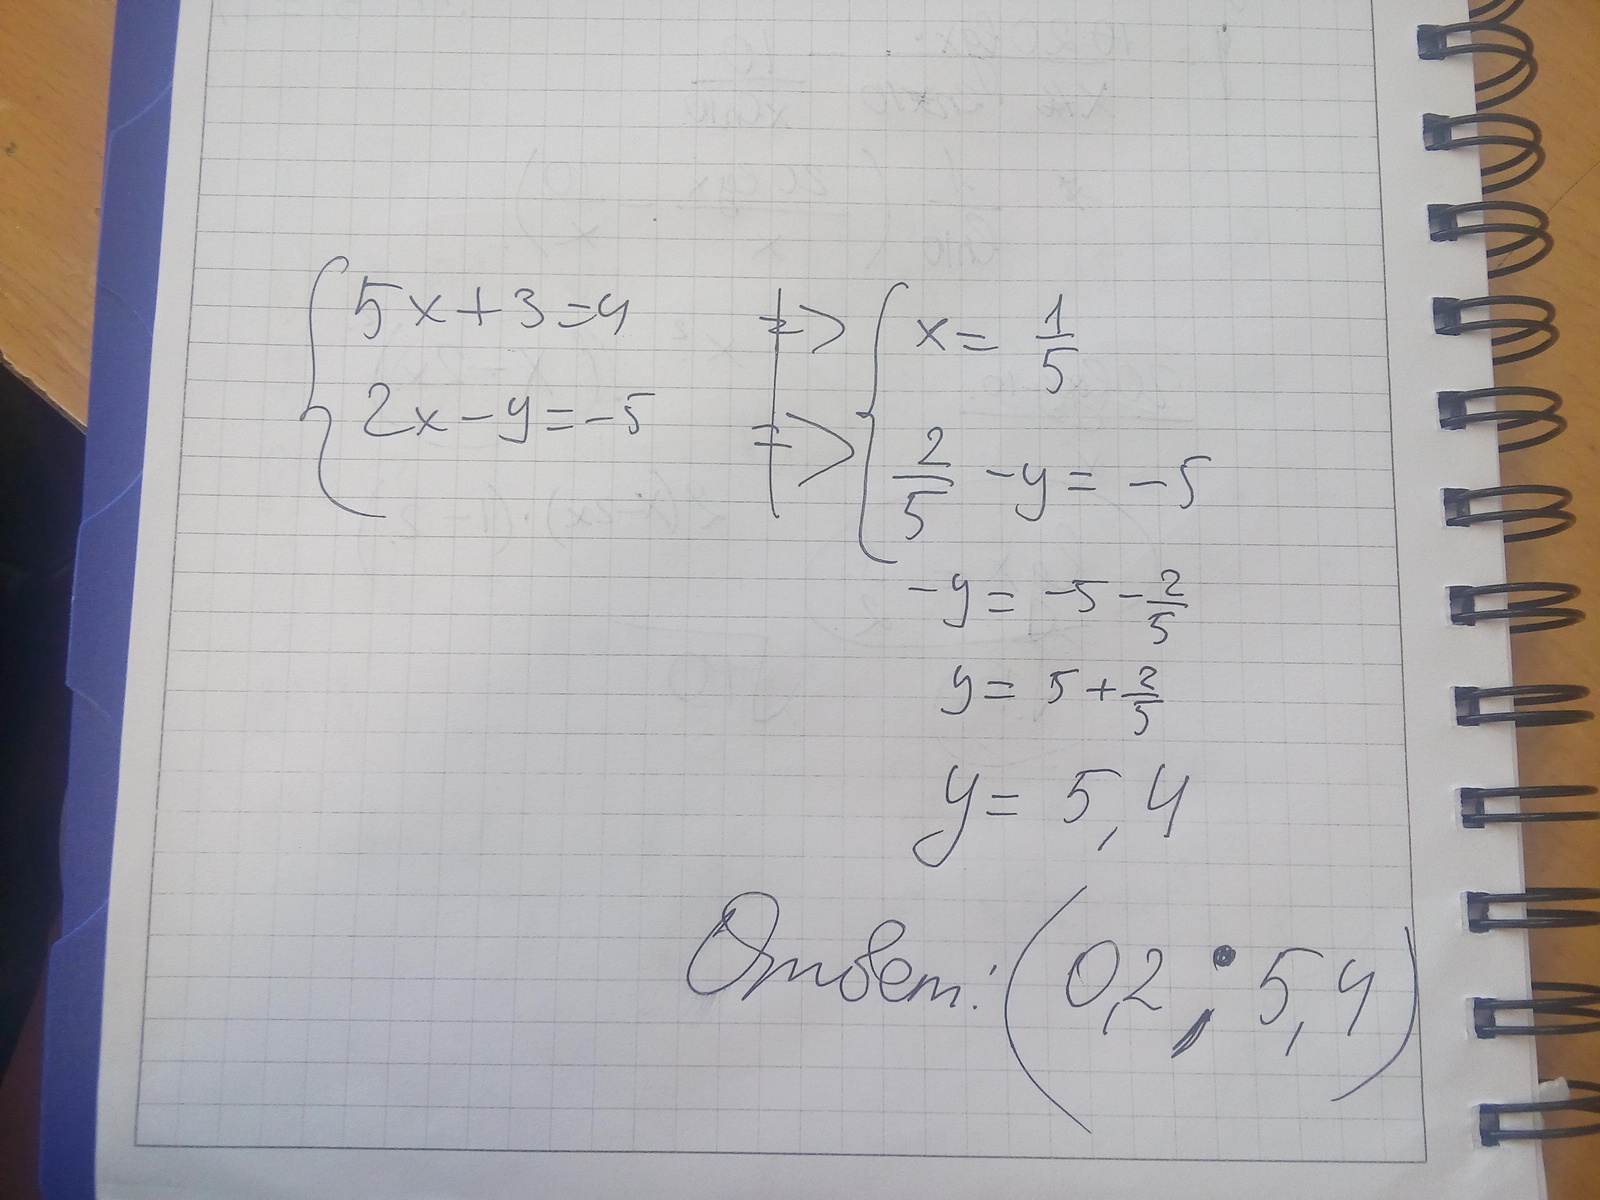 5x+3=4 => x= 1/5
2x-y=-5 => 2/5 -y= -5
-y= -5-2/5
y= 5+2/5
y= 5,4
Ответ: (0,2 ; 5,4)